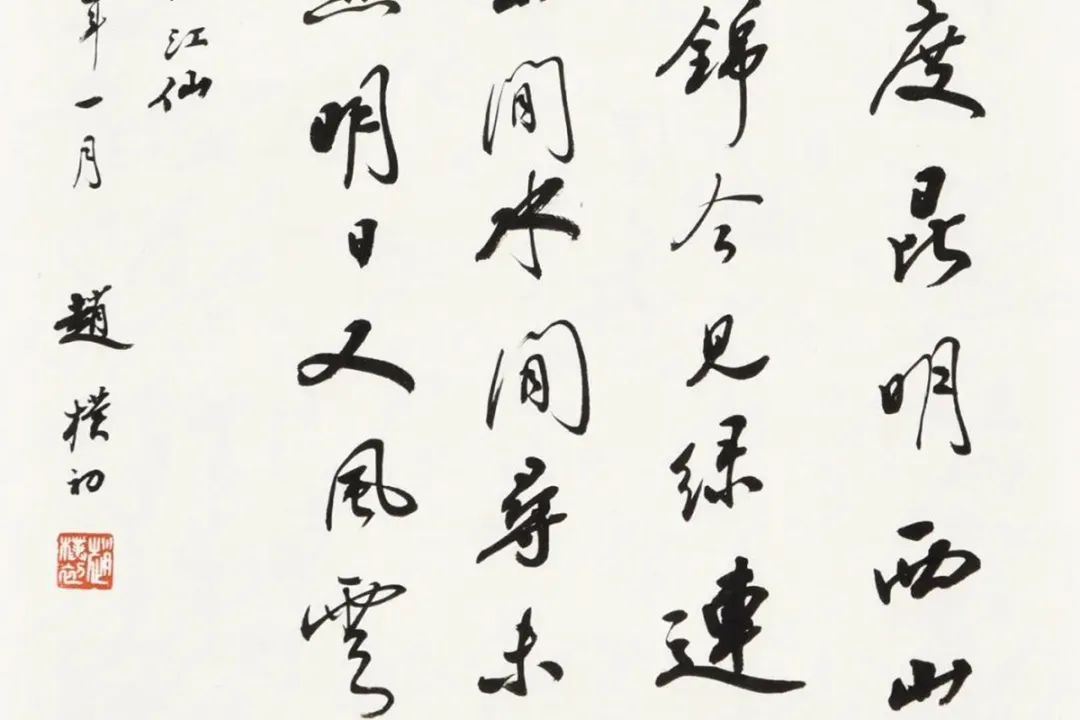 度昆明西山
錦今見綠連
間水間尋未
明日又風雲
江仙
年一月
趙樸初
趙樸初